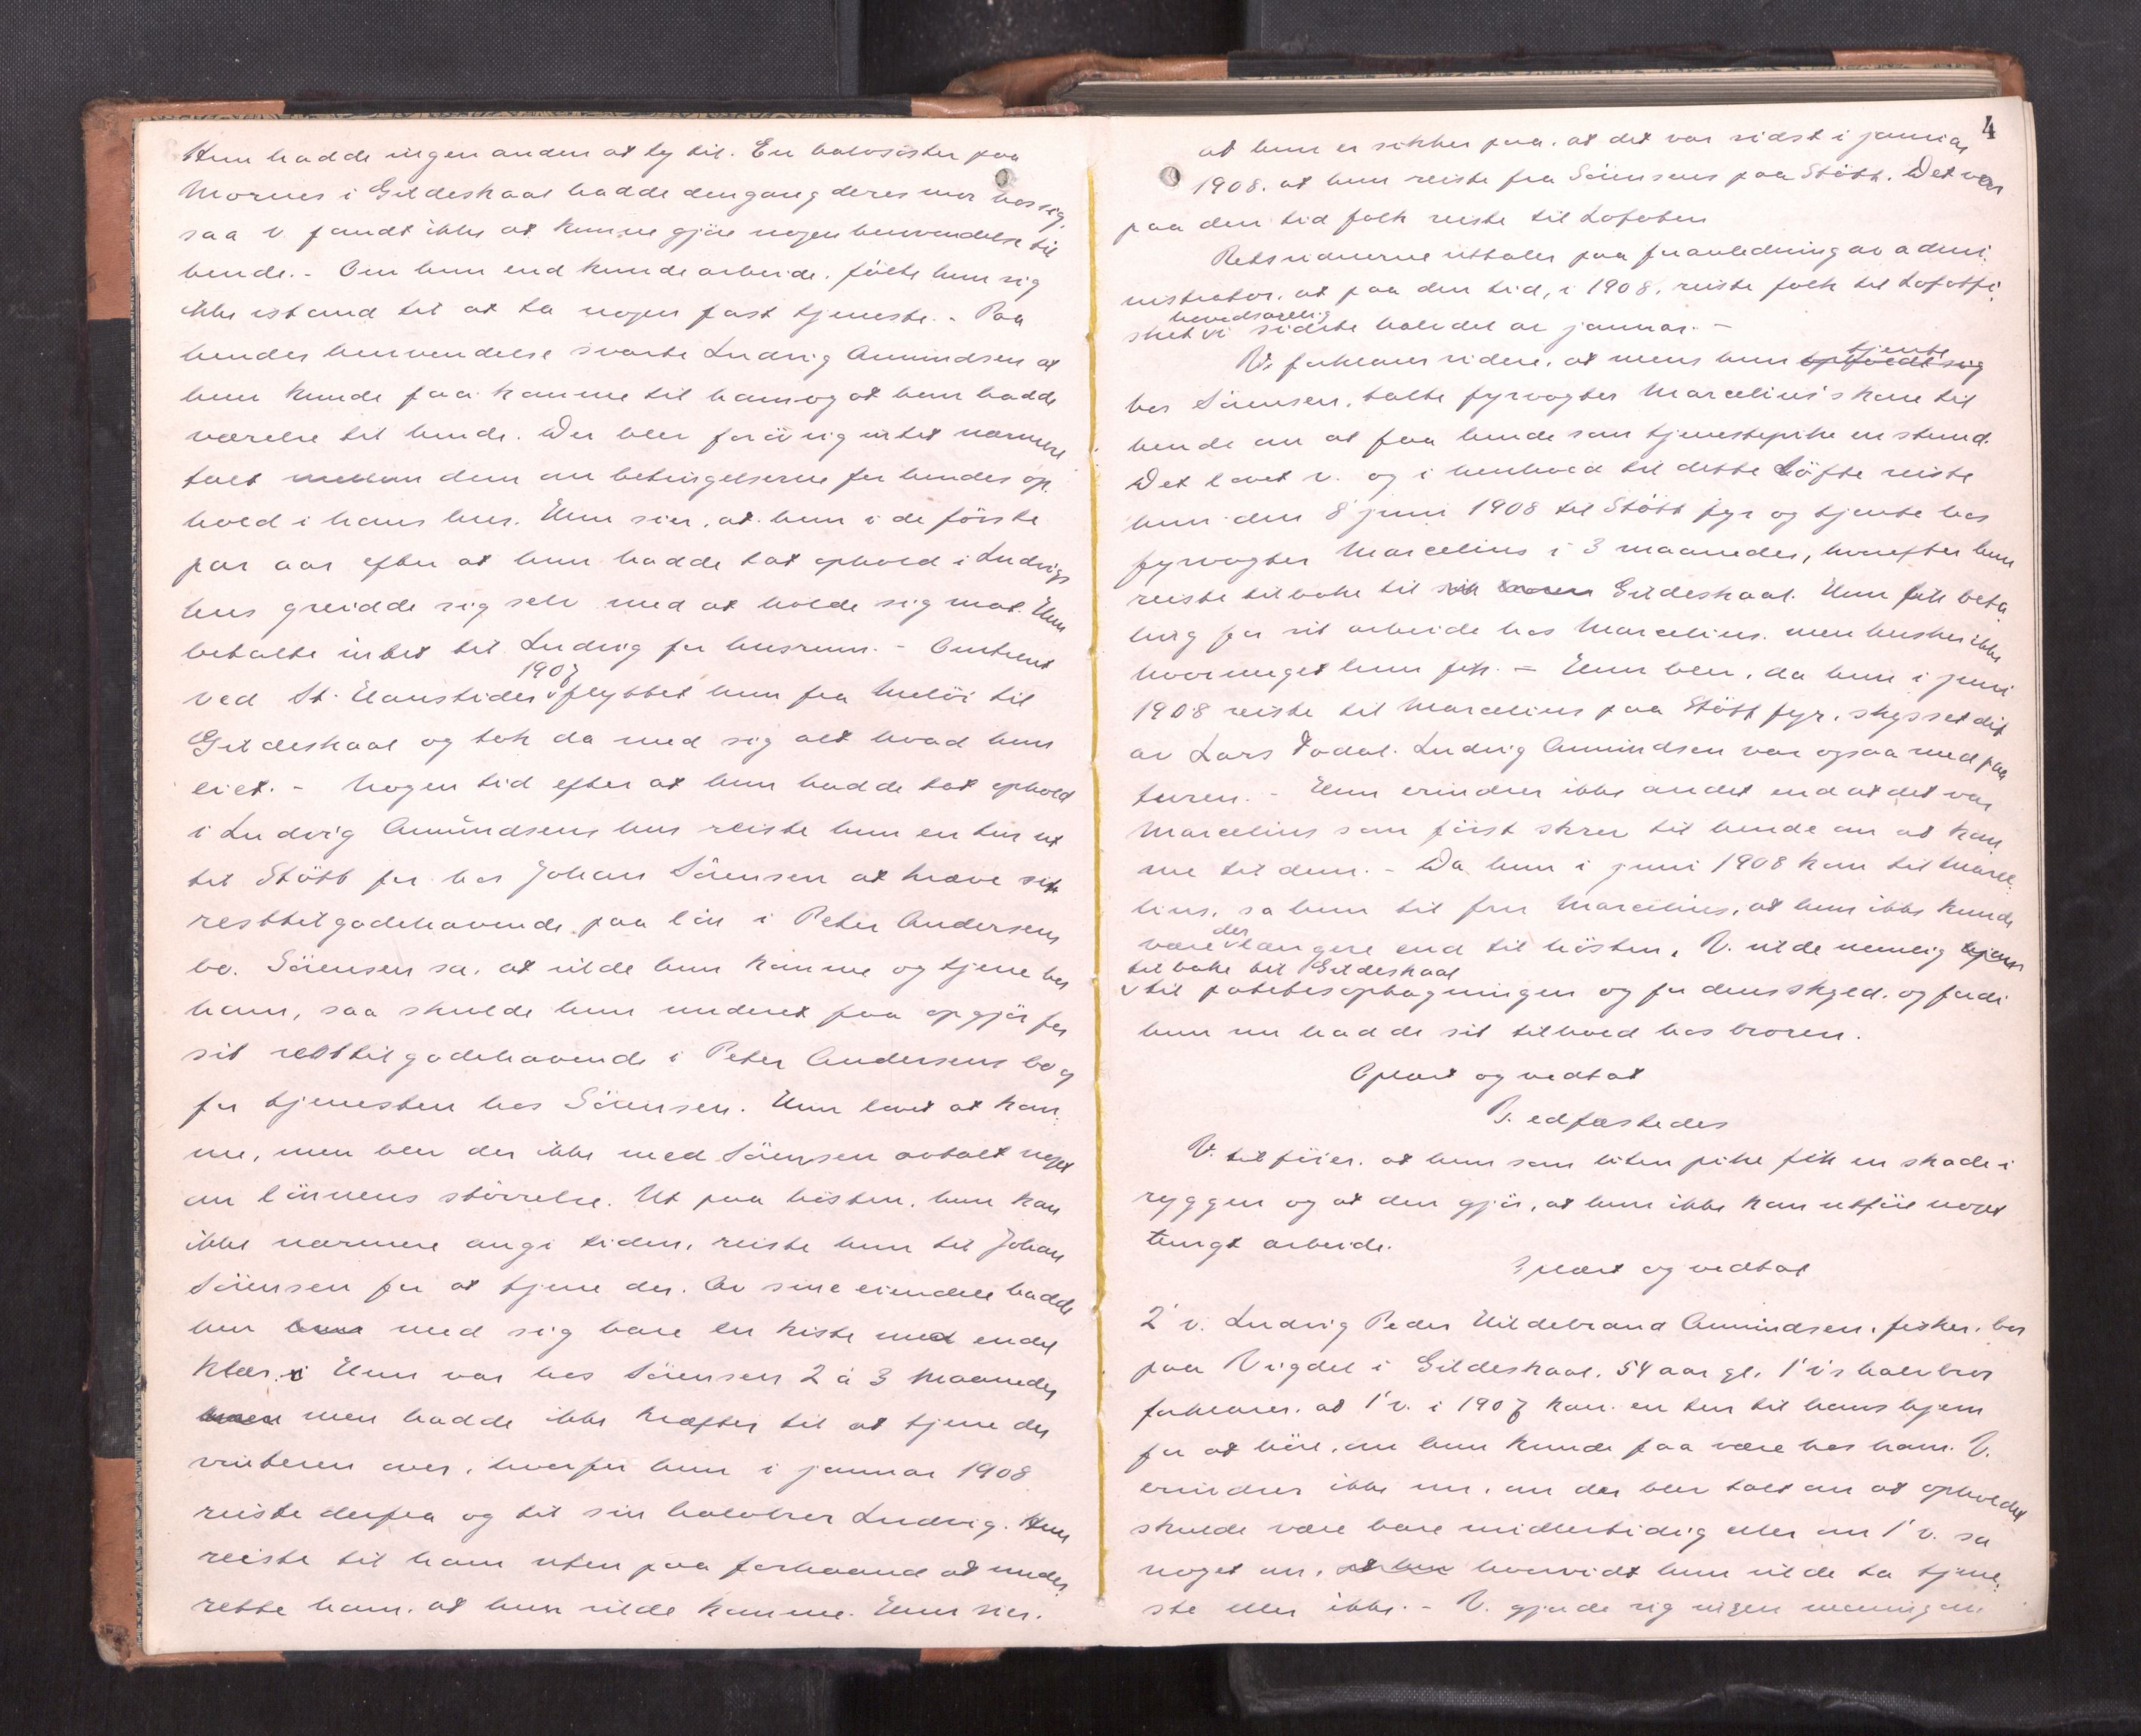 Hun hadde ingen anden at ty til. En halvsøster paa
Mornes i Gildeskaal hadde dengang deres mor hos sig,
saa v. fandt ikke at kunne gjøre nogen henvendelse til
hende. - Om hun end kunde arbeide, følte hun sig
ikke istand til at ta nogen fast tjeneste. - Paa
hendes henvendelse svarte Ludvig Amundsen at
hun kunde faa komme til ham og at hun hadde
værelse til hende. Der blev forøvrig intet nærmere
talt mellem dem om betingelserne for hendes op-
hold i hans hus. Hun sier, at hun i de første
par aar efter at hun hadde tat ophold i Ludvigs
hus greidde sig selv med at holde sig mat. Hun
betalte intet til Ludvig for husrum. - Omtrent
ved St. Hanstider 1907 flyttet hun fra Meløi til
Gildeskaal og tok da med sig alt hvad hun
eiet. - Nogen tid efter at hun hadde tat ophold
i Ludvig Amundsens hus reiste hun en tur ut
til Støtt for hos Johan Sørensen at hæve sit
resttilgodehavende paa løn i Peter Andersens
bo. Sørensen sa, at vilde hun komme og tjene hos
ham, saa skulde hun underet faa opgjør for
sit resttilgodehavende i Peter Andersens bo og
for tjenesten hos Sørensen. Hun lovet at kom-
me, men blev der ikke med Sørensen avtalt noget
om lønnens størrelse. Ut paa høsten, hun kan
ikke nærmere angi tiden, reiste hun til Johan
Sørensen for at tjene der. Av sine eiendele hadde
hun med sig bare en kiste med endel
klær. Hun var hos Sørensen 2 à 3 maaneder
men hadde ikke kræfter til at tjene der
vinteren over, hvorfor hun i januar 1908
reiste derfra og til sin halvbror Ludvig. Hun
reiste til ham uten paa forhaand at under-
rette ham, at hun vilde komme. Hun sier,
4
at hun er sikker paa, at det var sidst i januar
1908, at hun reiste fra Sørensens paa Støtt. Det var
paa den tid folk reiste til Lofoten
Retsvidnerne uttaler paa foranledning av admi-
nistrator, at paa den tid, i 1908, reiste folk til Lofotfi-
sket hovedsagelig i sidste halvdel av januar. -
V. forklarer videre, at mens hun opholdt sig tjente
hos Sørensen, talte fyrvogter Marcelius's kone til
hende om at faa hende som tjenestepike en stund.
Det lovet v. og i henhold til dette løfte reiste
hun den 8 juni 1908 til Støtt fyr og tjente hos
fyrvogter Marcelius i 3 maaneder, hvorefter hun
reiste tilbake til Gildeskaal. Hun fik beta-
ling for sit arbeide hos Marcelius, men husker ikke
hvormeget hun fik. - Hun blev, da hun i juni
1908 reiste til Marcelius paa Støtt fyr, skysset dit
av Lars Fodal. Ludvig Amundsen var ogsaa med paa
turen. - Hun erindrer ikke andet end at det var
Marcelius som først skrev til hende om at kom-
me til dem. - Da hun i juni 1908 kom til Marce-
lius, sa hun til fru Marcelius, at hun ikke kunde
være der længere end til høsten. V. vilde nemlig hjem
tilbake til Gildeskaal
til potetesoptagningen og for dens skyld, og fordi
hun nu hadde sit tilhold hos broren.
Oplæst og vedtat
V. edfæstedes
V. tilføier, at hun som liten pike fik en skade i
ryggen og at den gjør, at hun ikke kan utføre noget
tungt arbeide.
Oplæst og vedtat
2' v. Ludvig Peder Hildebrand Amundsen, fisker, bor
paa Vigdel i Gildeskaal, 54 aar gl. 1' v's halvbror
forklarer, at 1' v. i 1907 kom en tur til hans hjem
for at høre, om hun kunde faa være hos ham. V.
erindrer ikke nu, om der blev talt om at opholdet
skulde være bare midlertidig eller om 1' v. sa
noget om, hvorvidt hun vilde ta tjene-
ste eller ikke. - V. gjorde sig ingen mening om